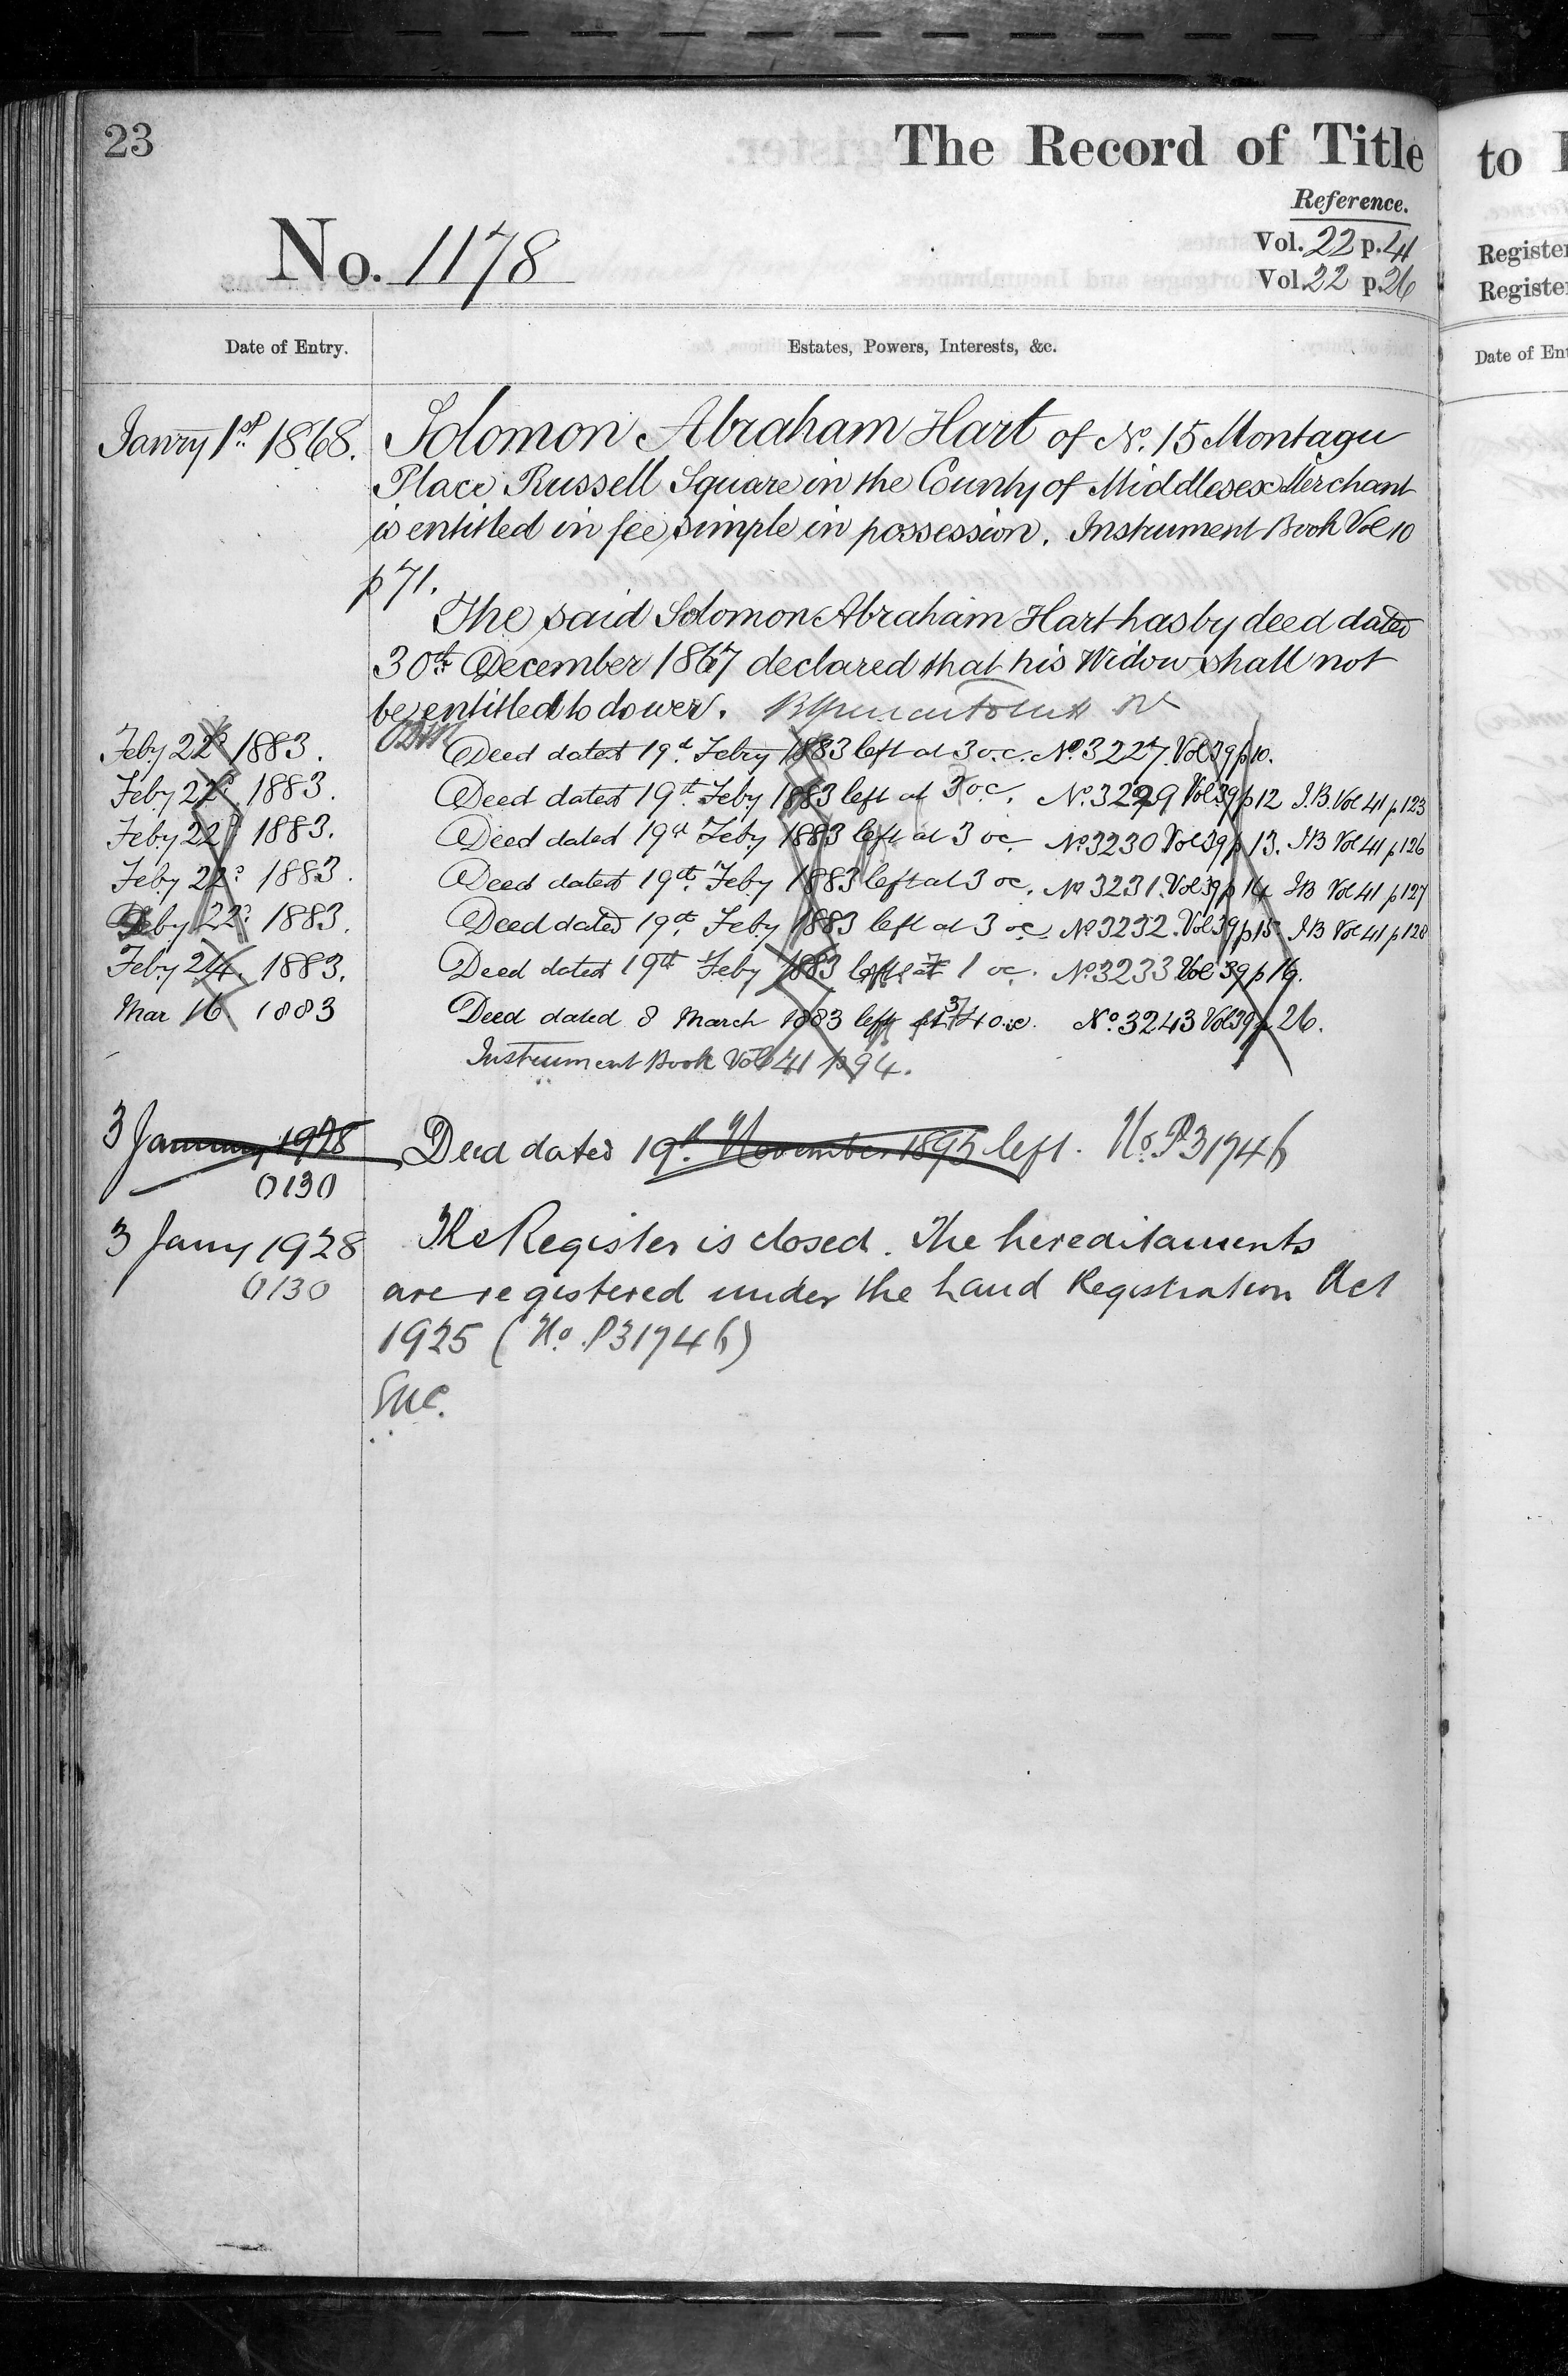 23
The Record of Title
to
Reference.
No. 1178
Vol. 22 p. 41
Vol. 22 p. 26
Register
Register
Date of Entry.
Estates, Powers, Interests, &c.
Date of Ent
Janry 1st 1868. Solomon Abraham Hart of No. 15 Montagu
Place Russell Square in the County of Middlesex Merchant
is entitled in fee simple in possession. Instrument Book Vol 10
p 71.
The said Solomon Abraham Hart has by deed dated
30th December 1867 declared that his Widow shall not
be entitled to dower.
Feby 22d 1883. Deed dated 19th Febry 1883 left at 3 o.c. No. 3227. Vol 39 p 10.
Feby 22d 1883. Deed dated 19th Feby 1883 left at 3 o.c. No. 3229 Vol 39 p 12 I.B. Vol 41 p 123
Feby 22d 1883. Deed dated 19th Feby 1883 left at 3 oc. No. 3230 Vol 39 p 13. IB Vol 41 p 126
Feby 22d 1883. Deed dated 19th Feby 1883 left at 3 oc. No 3231. Vol 39 p 14 IB Vol 41 p 127
Feby 22d 1883. Deed dated 19th Feby 1883 left at 3 oc. No. 3232. Vol 39 p 15. IB Vol 41 p 128
Feby 24. 1883. Deed dated 19th Feby 1883 left at 1 oc. No. 3233 Vol 39 p 16.
Mar 16 1883 Deed dated 8 March 1883 left at 3/4 o.c. No. 3243 Vol 39 p 26.
Instrument Book Vol 41 p 94.
3 January 1928 Deed dated 19th November 1895 left. No. P31746
0130
3 Jany 1928 The Register is closed. The hereditaments
0130 are registered under the Land Registration Act
1925 (No. P31746)